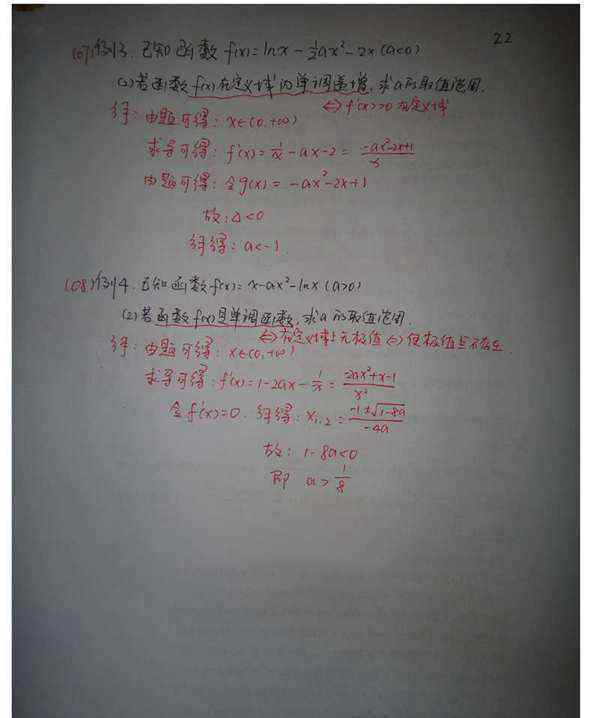 22
(07)例3. 已知函数 f(x)=lnx-½ax²-2x (a<0)
(2)若函数f(x)在定义域内单调递增, 求a的取值范围.
⇔f'(x)>0在定义域
解: 由题可得: x∈(0,+∞)
求导可得: f'(x)=1/x-ax-2=(-ax²-2x+1)/x
由题可得: 令g(x)=-ax²-2x+1
故: Δ<0
解得: a<-1
(08)例4. 已知函数f(x)=x-ax²-lnx (a>0)
(2)若函数f(x)是单调函数, 求a的取值范围.
⇔在定义域上无极值⇔但极值点不存在.
解: 由题可得: x∈(0,+∞)
求导可得: f'(x)=1-2ax-1/x=(2ax²+x-1)/x²
令f'(x)=0. 解得: x₁,₂=(-1±√(1-8a))/(-4a)
故: 1-8a<0
即 a>1/8